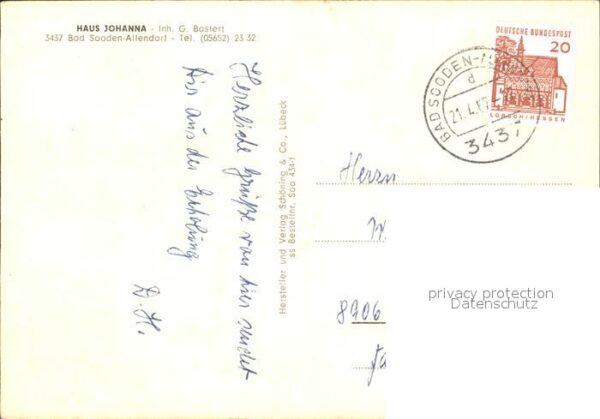 HAUS JOHANNA - Inh. G. Bastert
3437 Bad Sooden-Allendorf - Tel. (05652) 23 32
Herzliche Grüße von hier sendet
Dir aus der Erholung
D. H.
Hersteller und Verlag Schöning & Co., Lübeck
ss Bestellnr. Soo 434-1
DEUTSCHE BUNDESPOST
20
LORSCH/HESSEN
BAD SOODEN-
d
21.4.
3437
Herrn
8906
privacy protection
Datenschutz